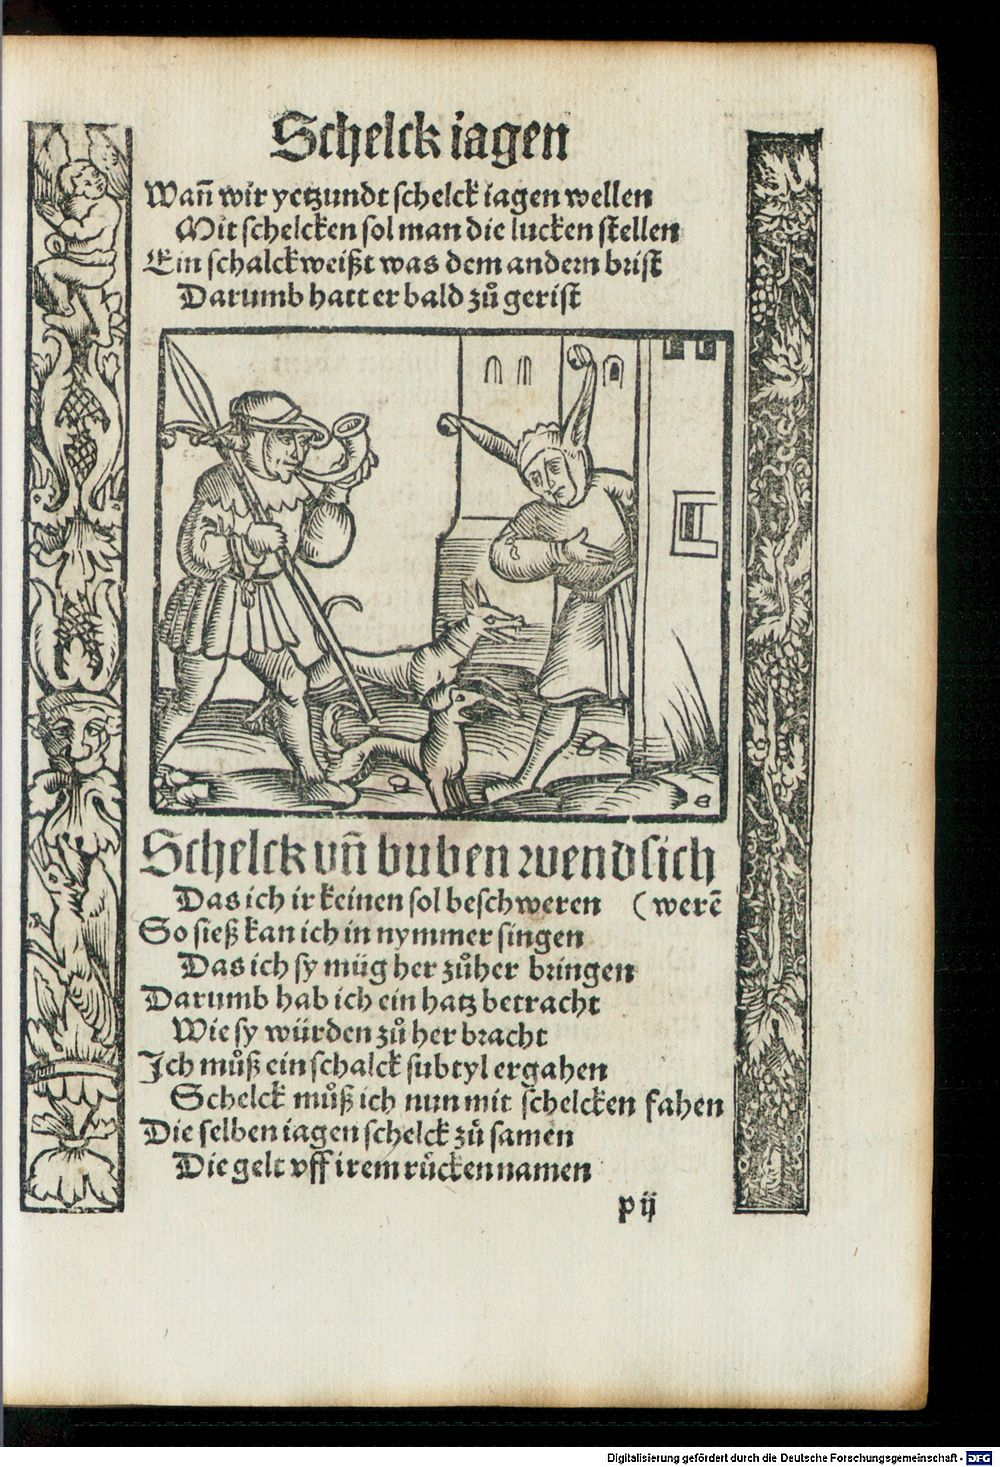 Schelck iagen
Wañ wir yetzundt schelck iagen wellen
Mit schelcken sol man die lucken stellen
Ein schalck weißt was dem andern brist
Darumb hatt er bald zů gerist
Schelck vñ buben wend sich
Das ich ir keinen sol beschweren (werē
So sieß kan ich in nymmer singen
Das ich sy müg her zůher bringen
Darumb hab ich ein hatz betracht
Wie sy würden zů her bracht
Ich můß ein schalck subtyl ergahen
Schelck můß ich nun mit schelcken fahen
Die selben iagen schelck zů samen
Die gelt vff irem rücken namen
p ij
Digitalisierung gefördert durch die Deutsche Forschungsgemeinschaft - DFG